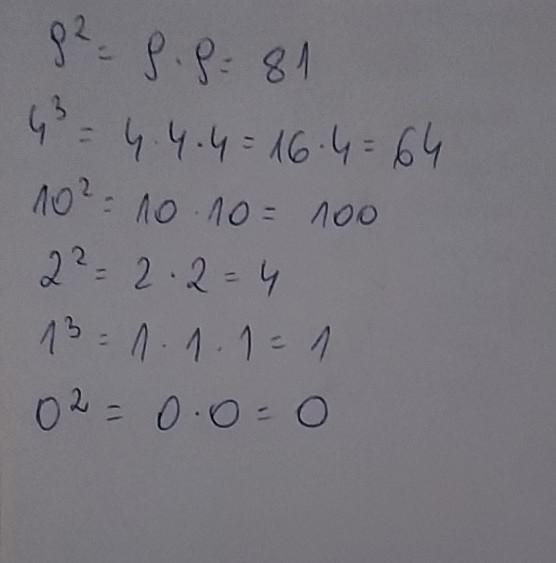 9² = 9 · 9 = 81
4³ = 4 · 4 · 4 = 16 · 4 = 64
10² = 10 · 10 = 100
2² = 2 · 2 = 4
1³ = 1 · 1 · 1 = 1
0² = 0 · 0 = 0